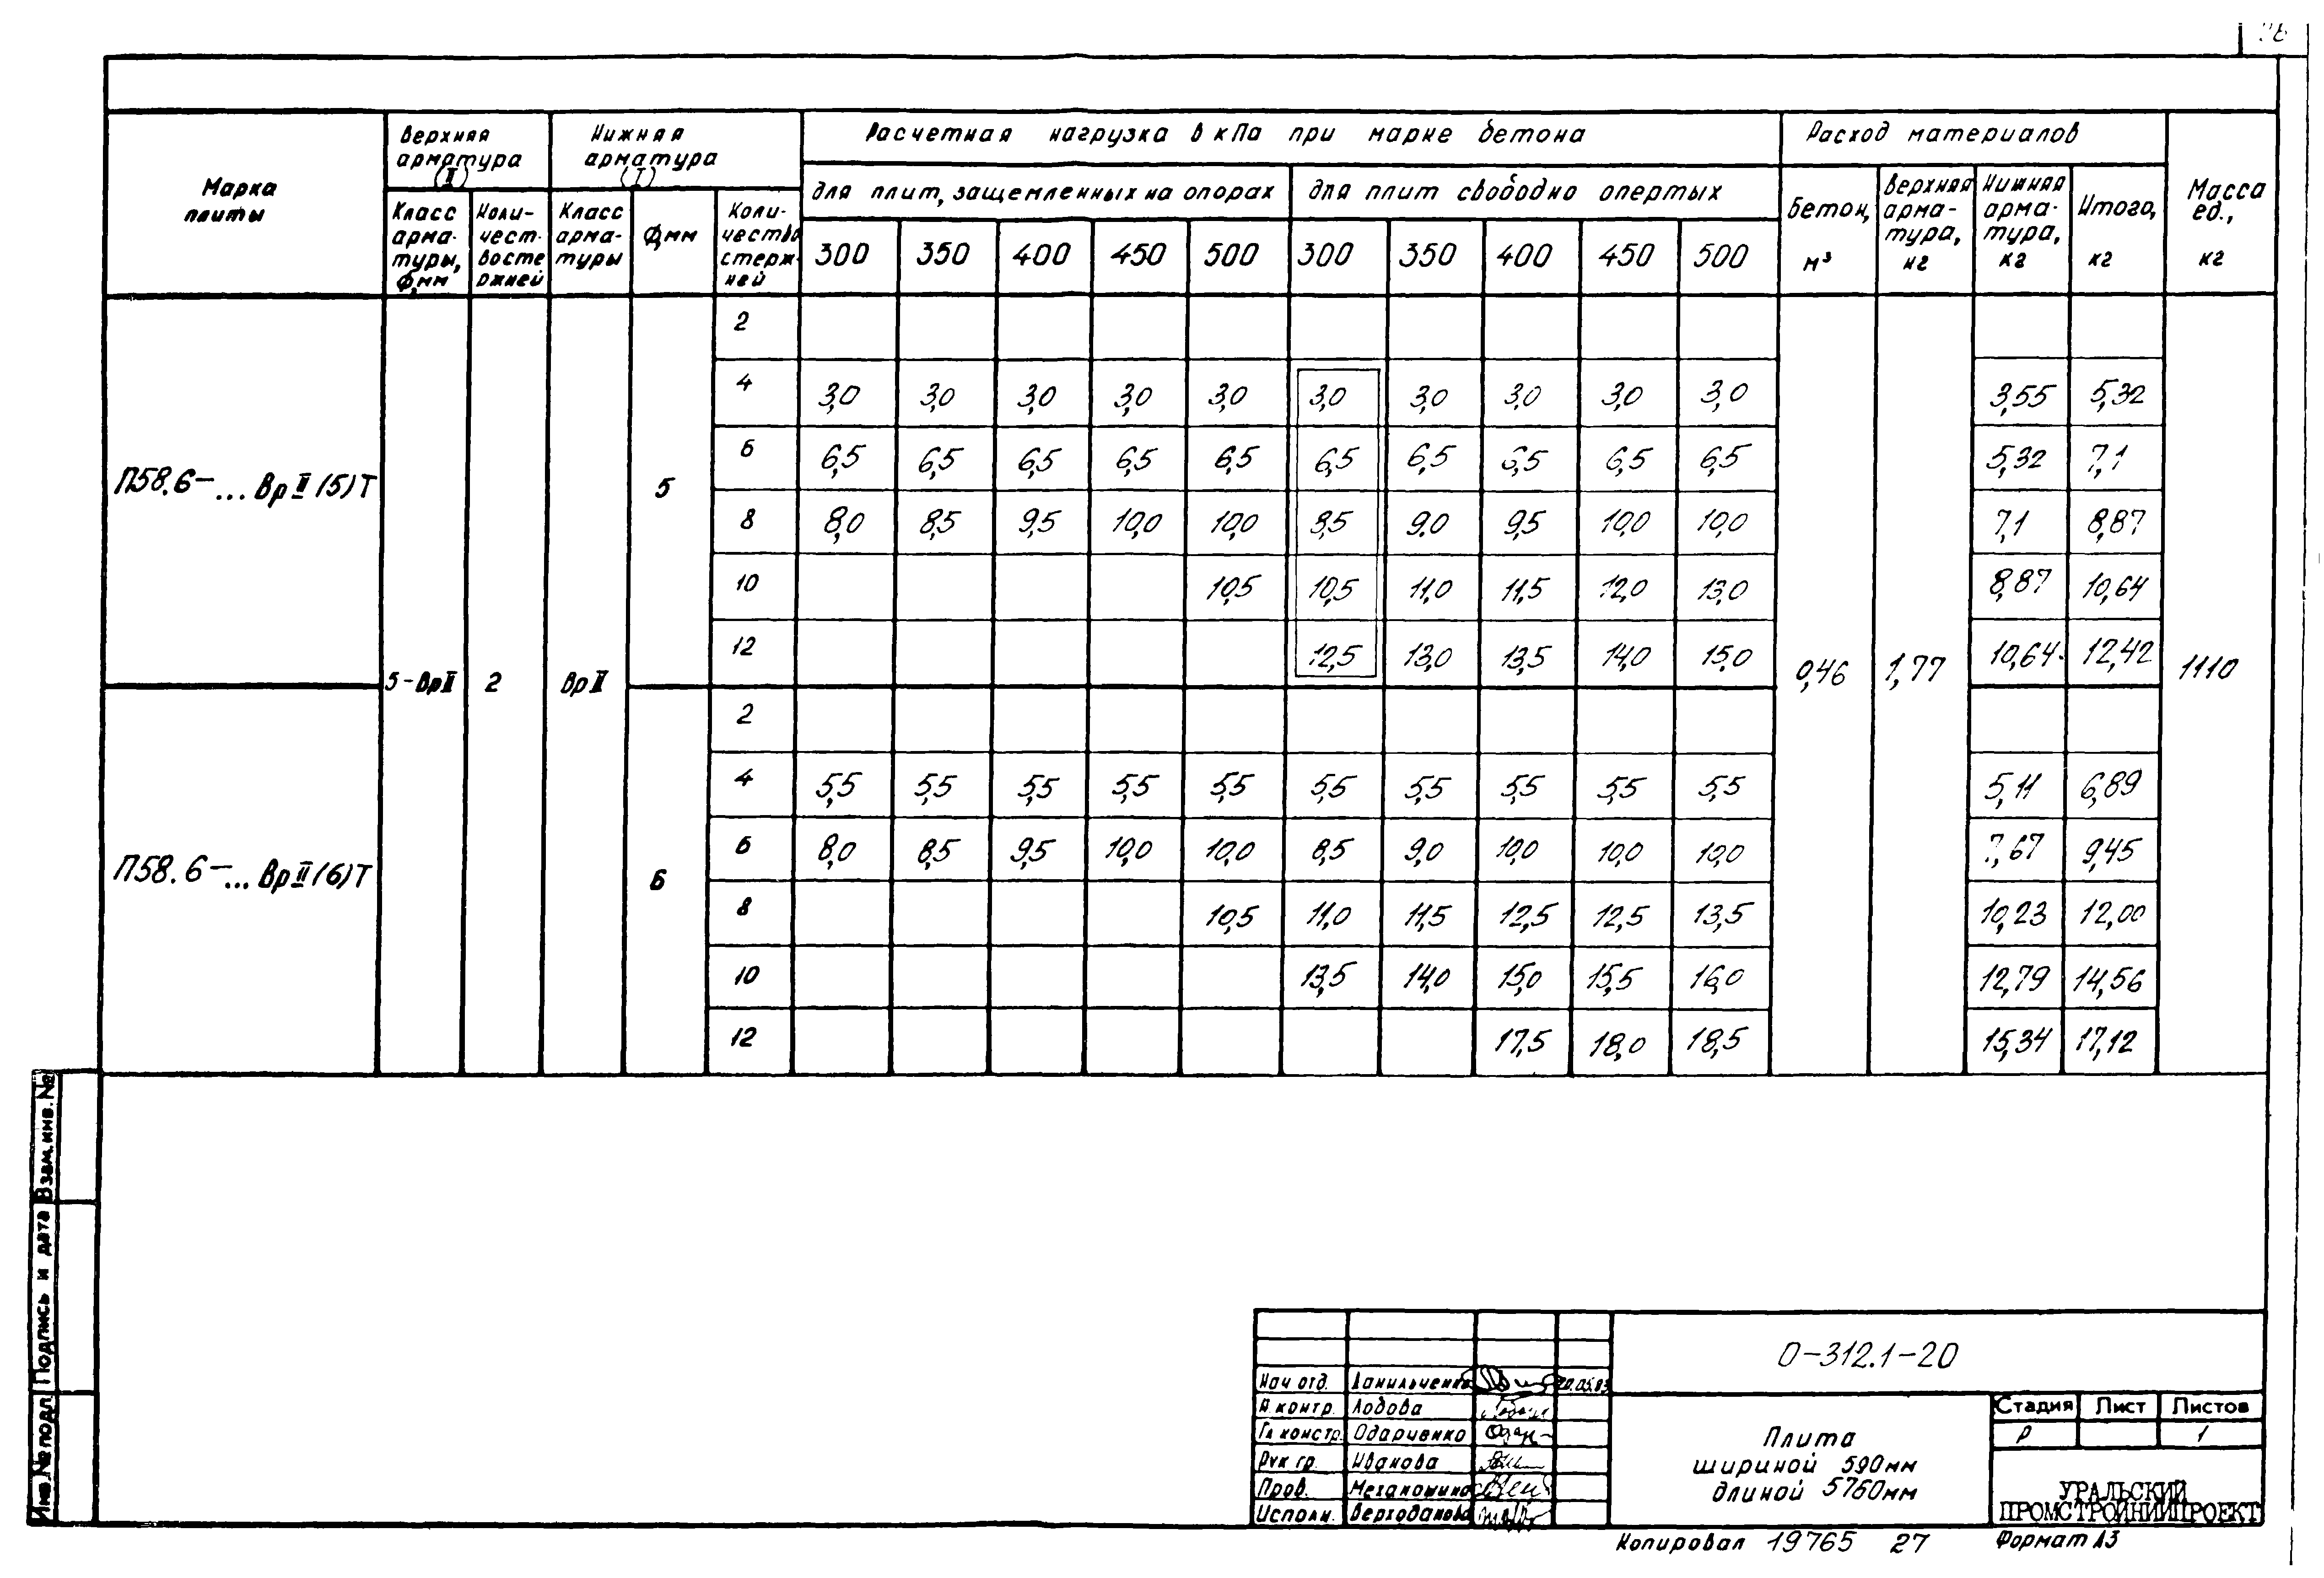 Марка плиты
Верхняя арматура (II)
Нижняя арматура (I)
Расчетная нагрузка в кПа при марке бетона
Расход материалов
Масса ед., кг
для плит, защемленных на опорах
для плит свободно опертых
Класс арма-туры, Ф,мм
Коли-чест-восте ржней
Класс арма-туры
Ф,мм
Коли-чество стерж-ней
300 350 400 450 500 300 350 400 450 500
Бетон, м³
Верхняя арма-тура, кг
Нижняя арма-тура, кг
Итого, кг
П58.6-...ВрII(5)Т
5-ВрII 2 ВрII 5
0,46 1,77 1110
2
4 3,0 3,0 3,0 3,0 3,0 3,0 3,0 3,0 3,0 3,0 3,55 5,32
6 6,5 6,5 6,5 6,5 6,5 6,5 6,5 6,5 6,5 6,5 5,32 7,1
8 8,0 8,5 9,5 10,0 10,0 8,5 9,0 9,5 10,0 10,0 7,1 8,87
10 10,5 10,5 11,0 11,5 12,0 13,0 8,87 10,64
12 12,5 13,0 13,5 14,0 15,0 10,64 12,42
П58.6-...ВрII(6)Т
6
2
4 5,5 5,5 5,5 5,5 5,5 5,5 5,5 5,5 5,5 5,5 5,11 6,89
6 8,0 8,5 9,5 10,0 10,0 8,5 9,0 10,0 10,0 10,0 7,67 9,45
8 10,5 11,0 11,5 12,5 12,5 13,5 10,23 12,00
10 13,5 14,0 15,0 15,5 16,0 12,79 14,56
12 17,5 18,0 18,5 15,34 17,12
Инв.№подл. Подпись и дата Взам.инв.№
О-312.1-20
Нач отд. Данильченко 20.05.83
Н.контр. Лодова
Гл констр. Одарченко
Рук гр. Иванова
Пров. Механошина
Исполн. Верходанова
Плита
шириной 590мм
длиной 5760мм
Стадия Лист Листов
Р 1
УРАЛЬСКИЙ
ПРОМСТРОЙНИИПРОЕКТ
Копировал 19765 27 Формат А3